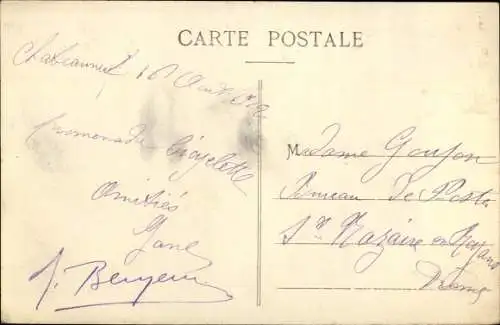 CARTE POSTALE
Chateauneuf 16 Août
Promenade bicyclette
Amitiés
Madame Goujon
Bureau de Poste
St Nazaire en Royans
Drôme